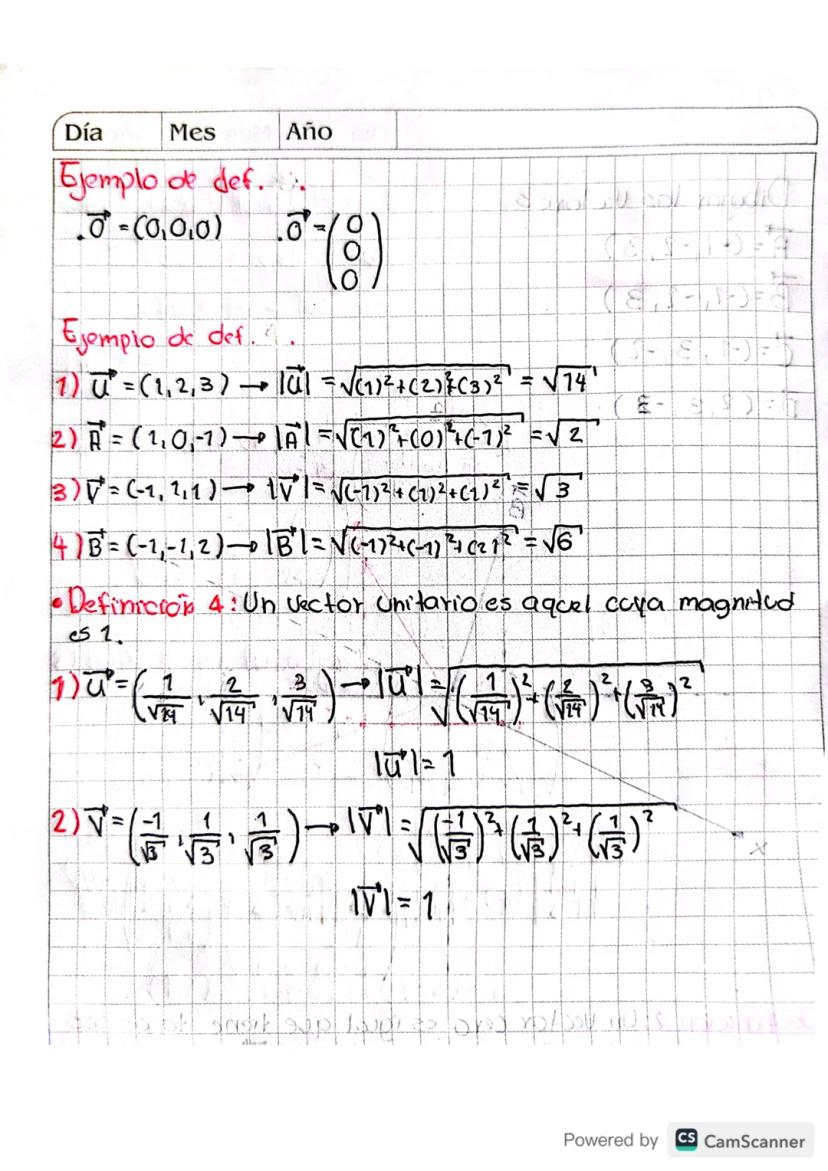 Día Mes Año
Ejemplo de def. ∴
. \vec{O} = (0,0,0) . \vec{O} = (0 0 0)
Ejemplo de def. .
1) \vec{u} = (1, 2, 3) → |\vec{u}| = √((1)²+(2)²+(3)²) = √14
2) \vec{A} = (1, 0, -1) → |\vec{A}| = √((1)²+(0)²+(-1)²) = √2
3) \vec{V} = (-1, 1, 1) → |\vec{V}| = √((-1)²+(1)²+(1)²) = √3
4) \vec{B} = (-1, -1, 2) → |\vec{B}| = √((-1)²+(-1)²+(2)²) = √6
• Definición 4: Un vector unitario es aquel cuya magnitud
es 1.
1) \vec{u} = (1/√14, 2/√14, 3/√14) → |\vec{u}| = √((1/√14)²+(2/√14)²+(3/√14)²)
|\vec{u}| = 1
2) \vec{V} = (-1/√3, 1/√3, 1/√3) → |\vec{V}| = √((-1/√3)²+(1/√3)²+(1/√3)²)
|\vec{V}| = 1
x
Powered by CS CamScanner